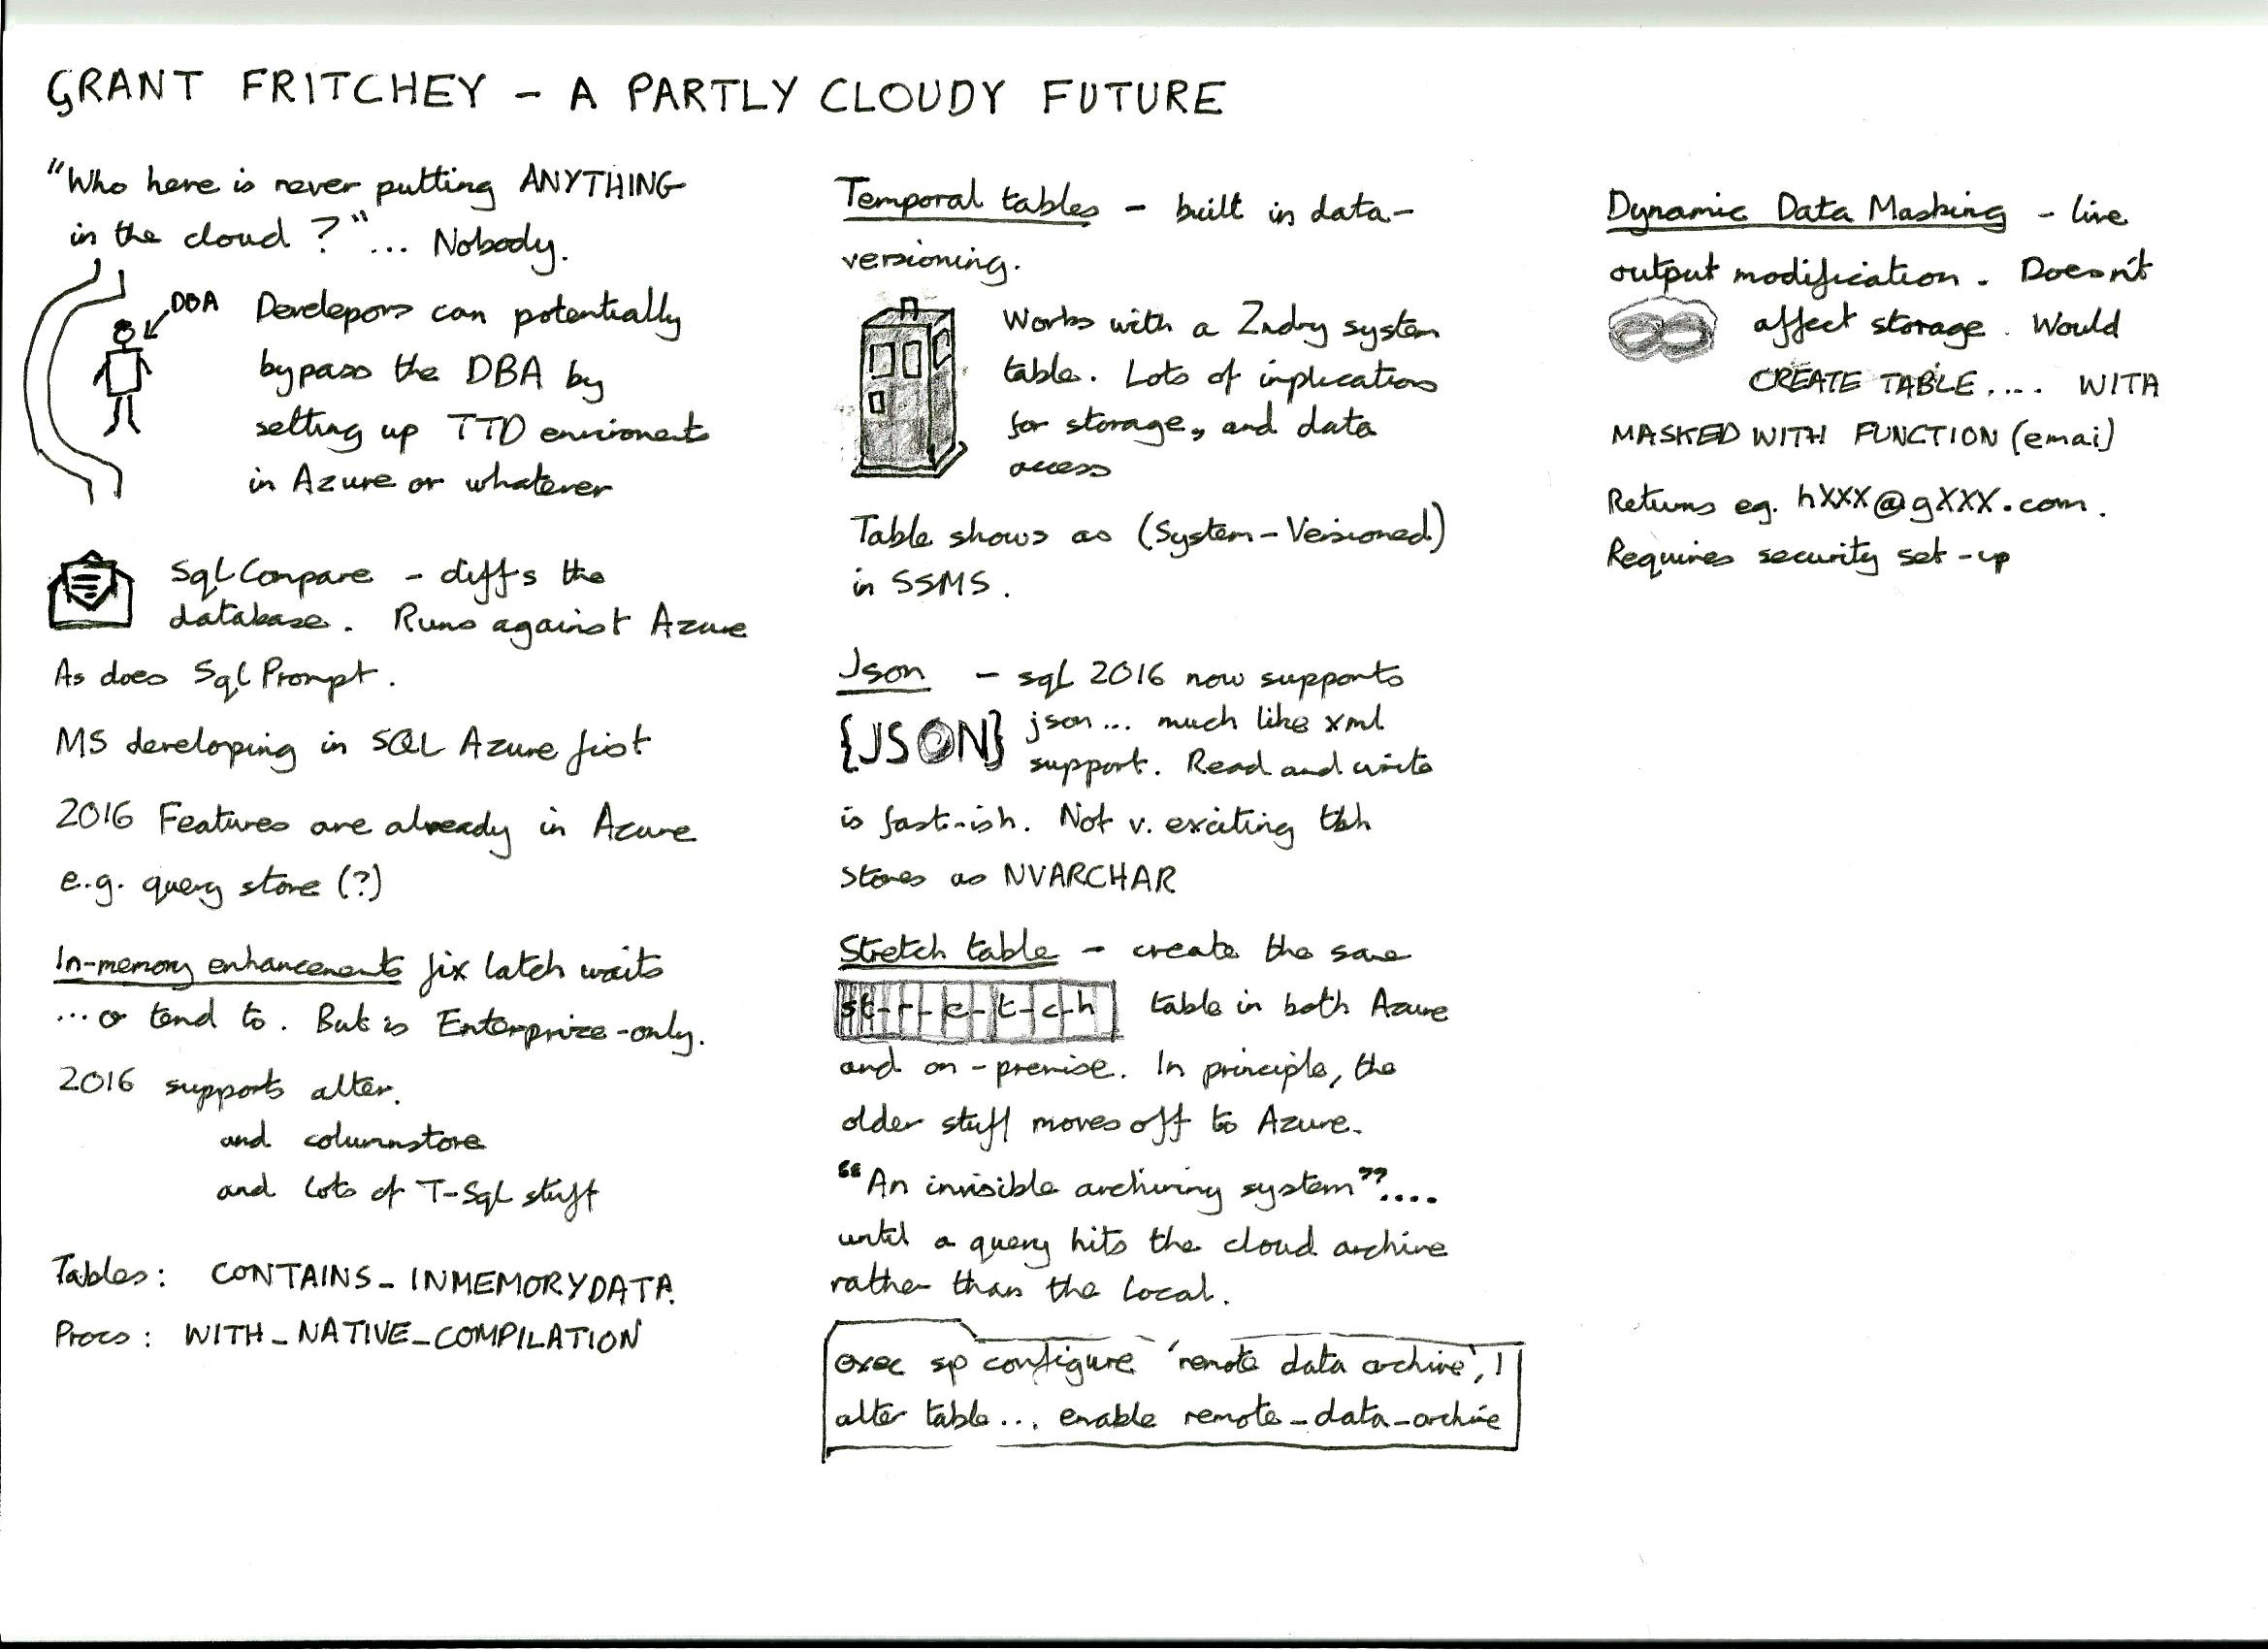 GRANT FRITCHEY - A PARTLY CLOUDY FUTURE
"Who here is never putting ANYTHING
in the cloud?"... Nobody.
DBA
Developers can potentially
bypass the DBA by
setting up TTD enviroments
in Azure or whatever
Sql Compare - diffs the
database. Runs against Azure
As does Sql Prompt.
MS developing in SQL Azure first
2016 Features are already in Azure
e.g. query store (?)
In-memory enhancements fix latch waits
...or tend to. But is Enterprize-only.
2016 supports alter.
and columnstore
and lots of T-Sql stuff
Tables: CONTAINS_INMEMORYDATA
Procs: WITH_NATIVE_COMPILATION
Temporal tables - built in data-
versioning.
Works with a 2ndry system
table. Lots of implications
for storage, and data
access
Table shows as (System-Versioned)
in SSMS.
Json - sql 2016 now supports
{JSON} json... much like xml
support. Read and write
is fast-ish. Not v. exciting tbh
Stores as NVARCHAR
Stretch table - create the same
st-r-e-t-c-h table in both Azure
and on-premise. In principle, the
older stuff moves off to Azure.
"An invisible archiving system"....
until a query hits the cloud archive
rather than the local.
exec sp configure 'remote data archive', 1
alter table... enable remote_data_archive
Dynamic Data Masking - live
output modification. Doesn't
affect storage. Would
CREATE TABLE.... WITH
MASKED WITH FUNCTION (emai)
Returns eg. hXXX@gXXX.com.
Requires security set-up